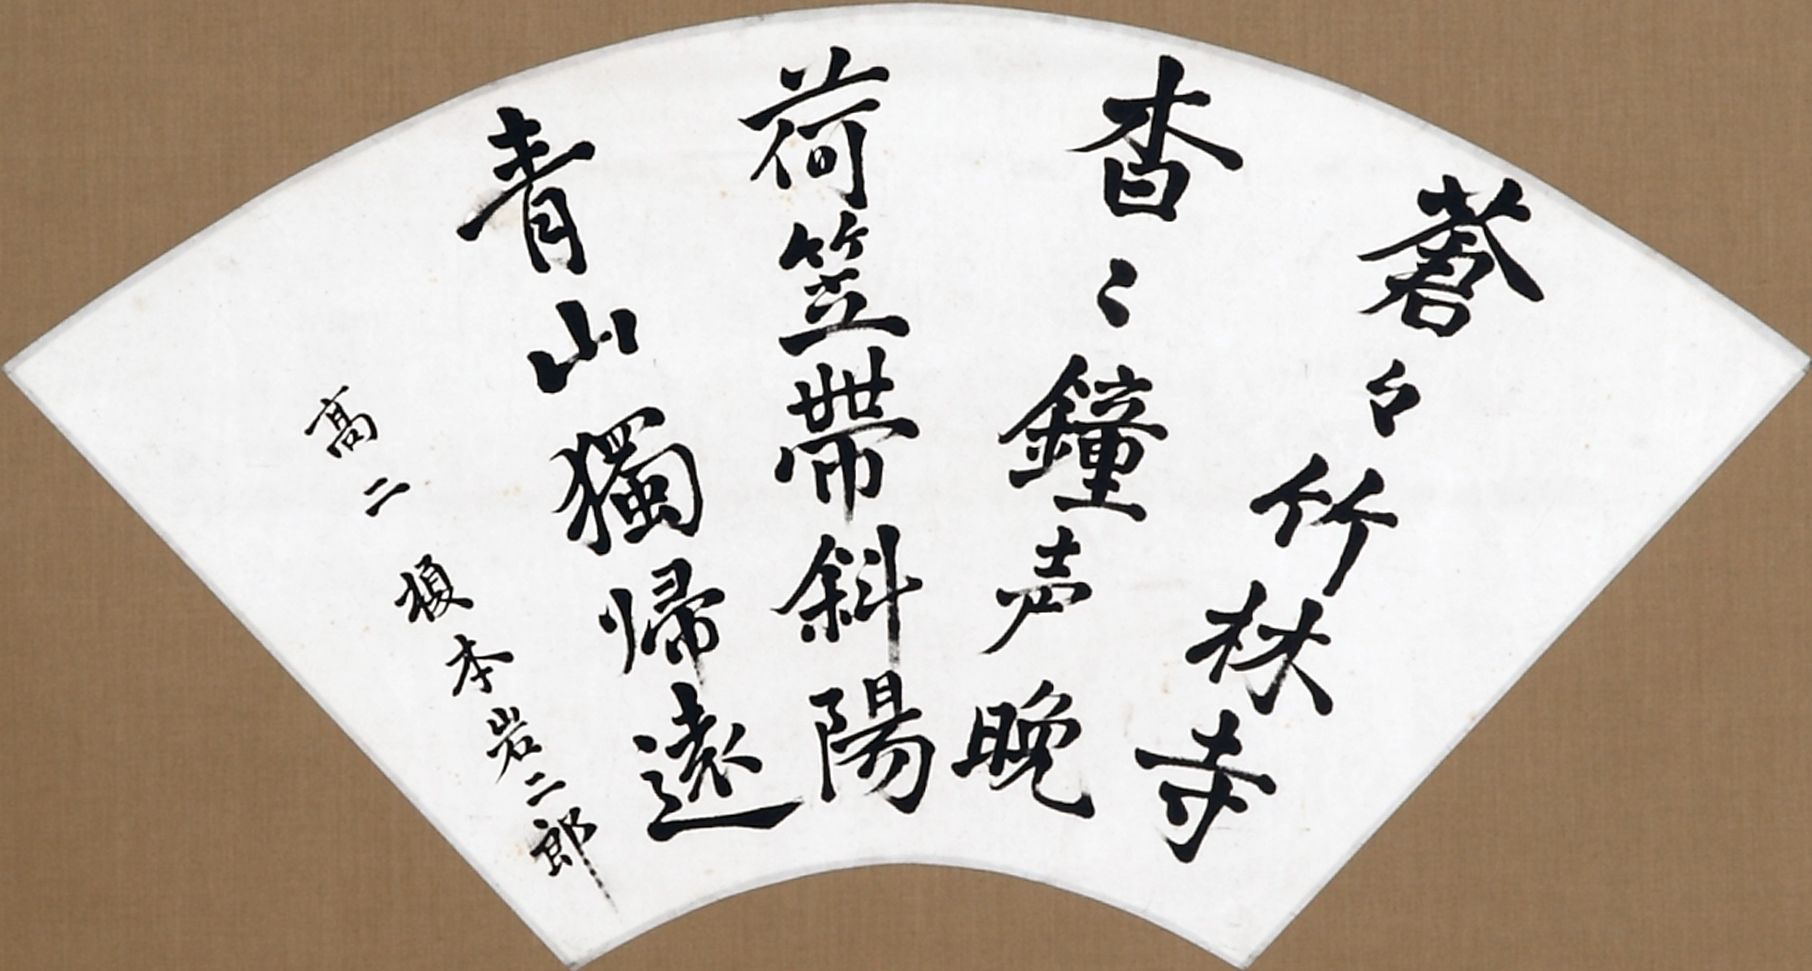 蒼々竹林寺
杳〻鐘声晩
荷笠帯斜陽
青山獨帰遠
高二 榎本岩二郎